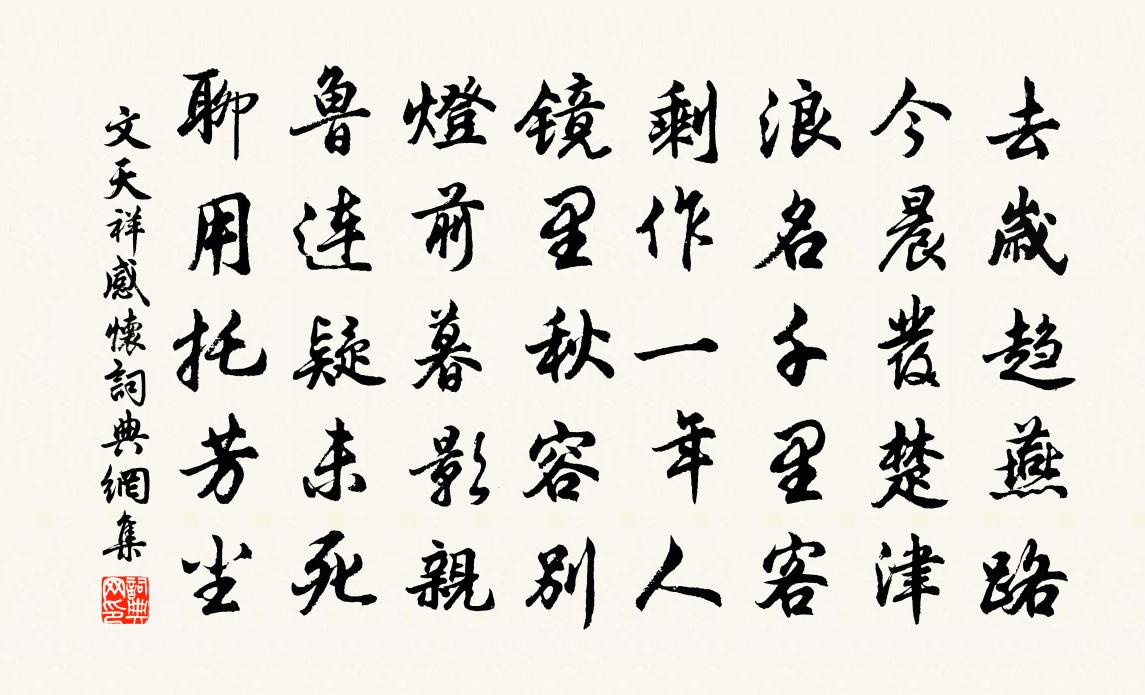 去歲趋燕路
今晨發楚津
浪名千里客
剩作一年人
镜里秋容别
燈前暮影親
魯連疑未死
聊用托芳尘
文天祥感懷詞典網集
詞典網印